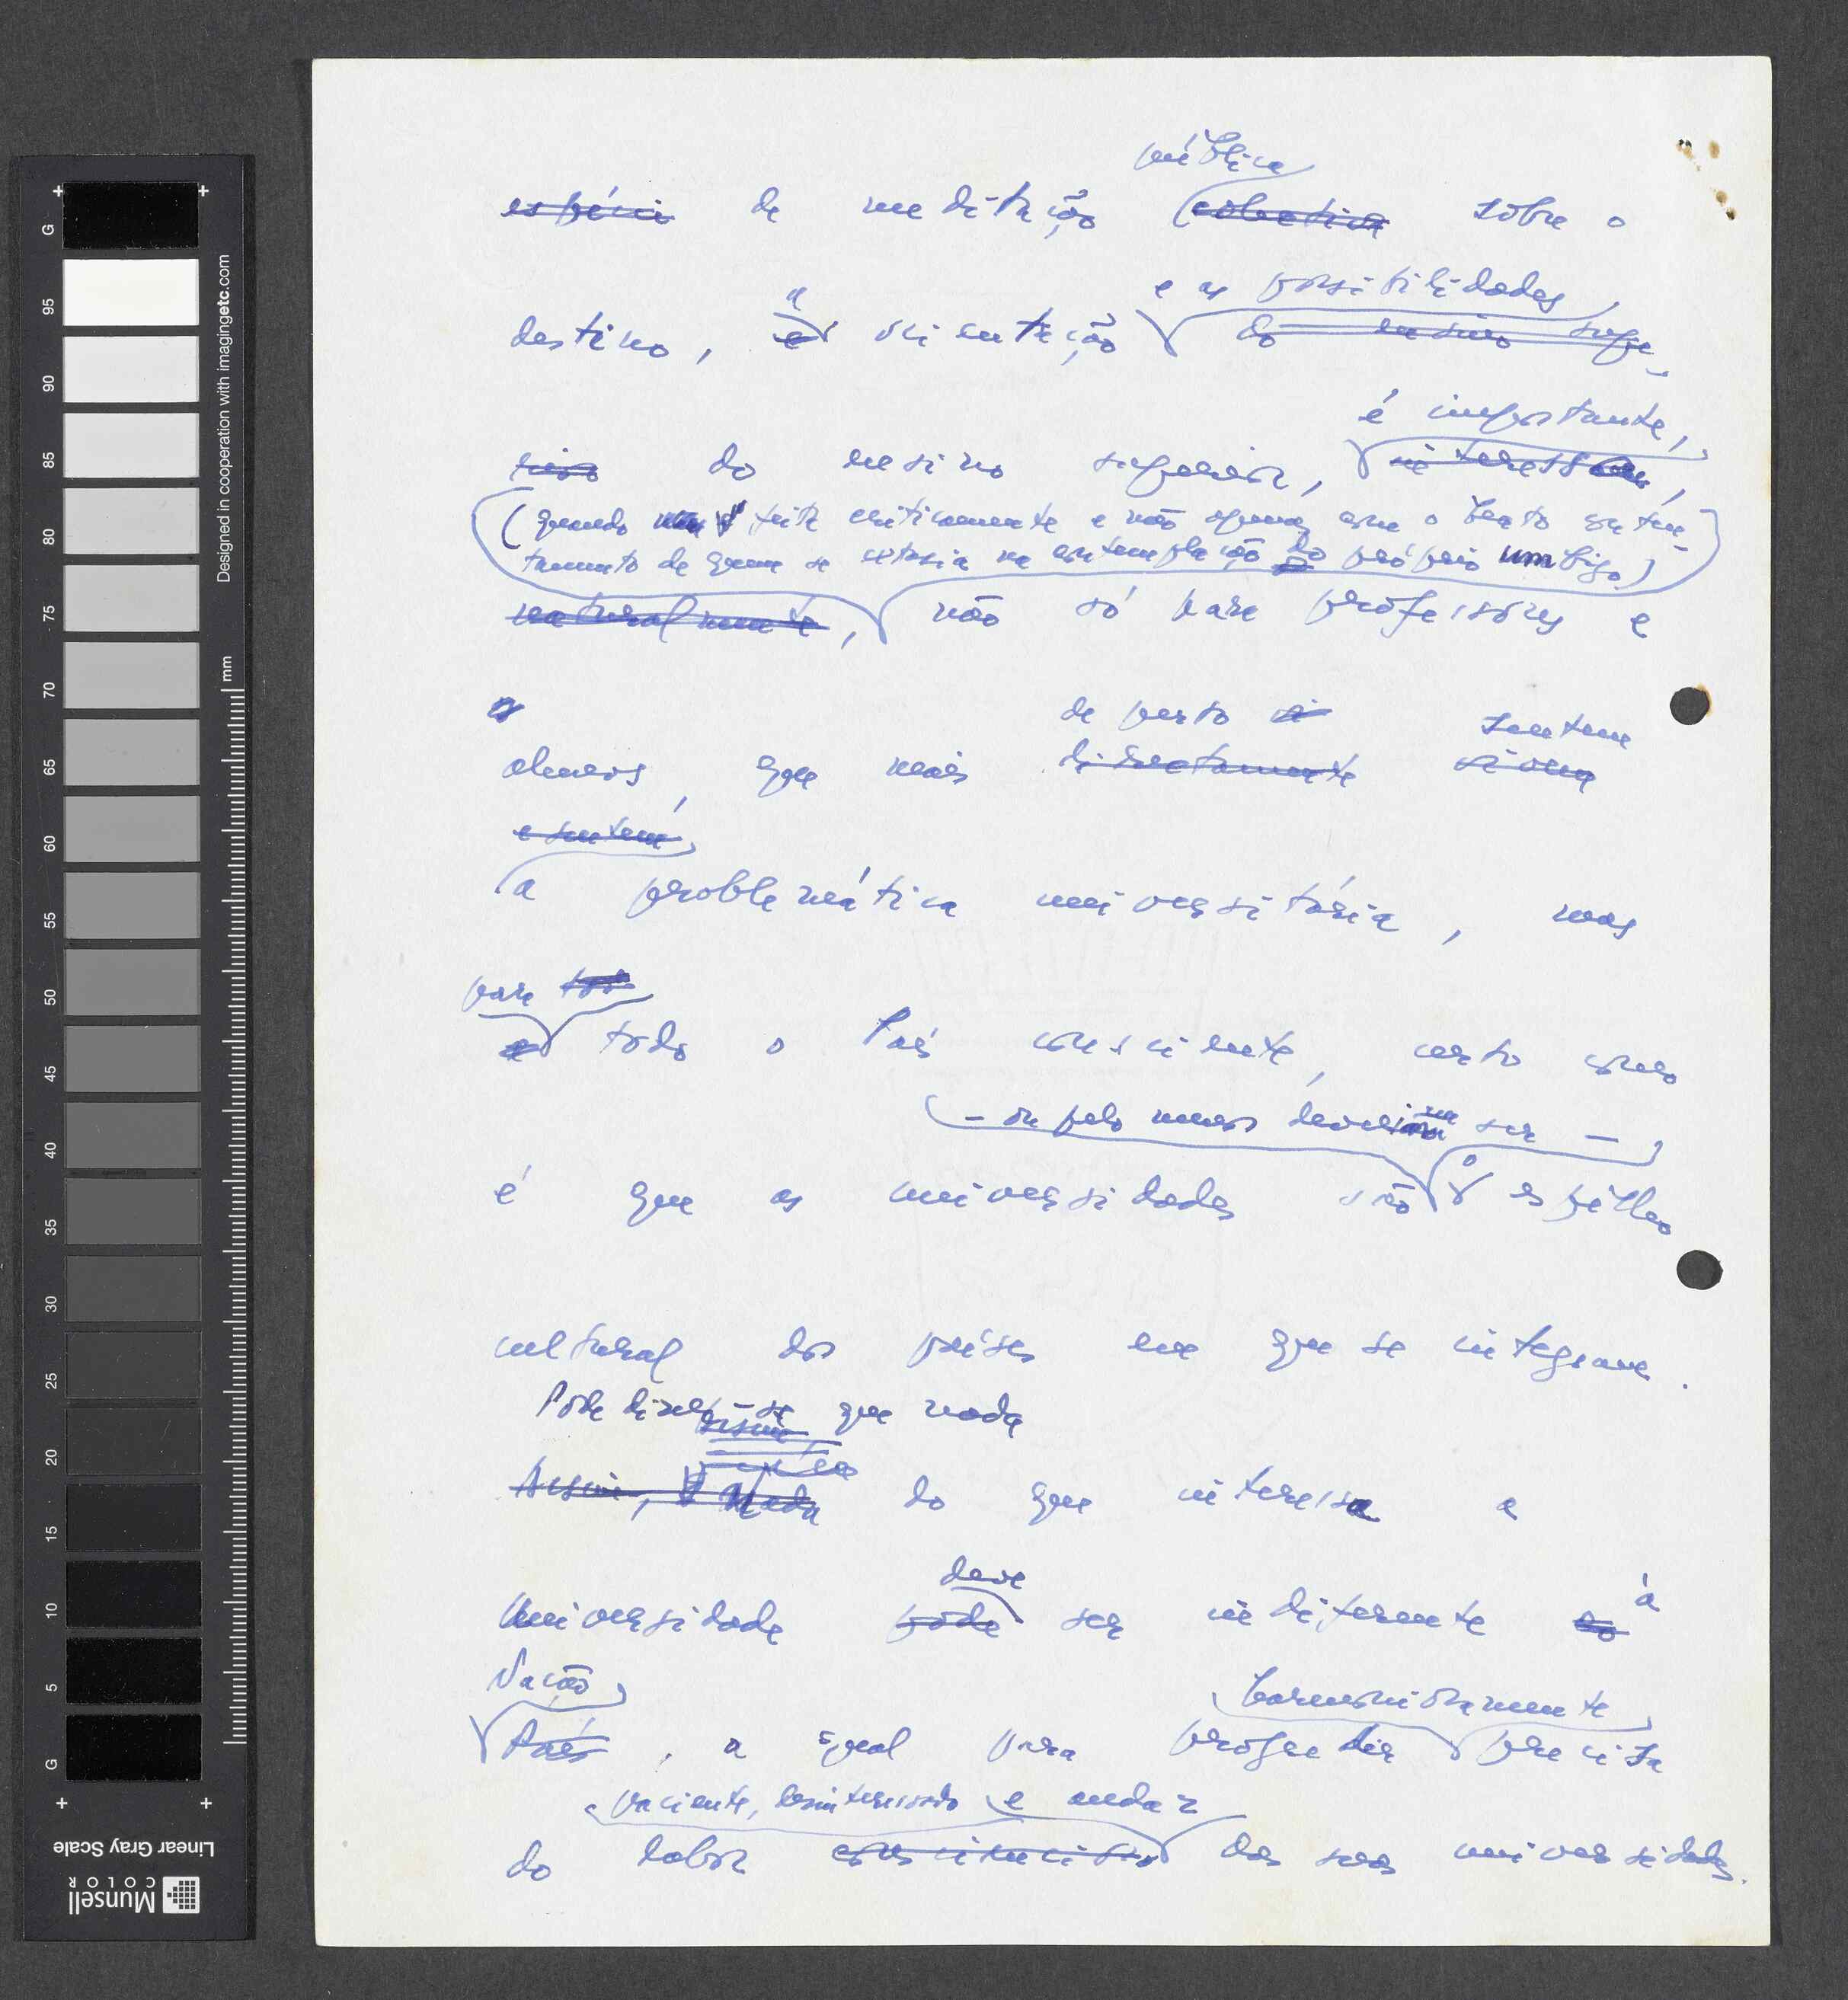 pública
espécie de meditação colectiva sobre o
a e as possibilidades
destino, e orientação do ensino supe-
é importante,
rior do ensino superior, interessam,
(quando feita criticamente e não apenas com o beato conten-
tamento de quem se extasia na contemplação do próprio umbigo)
naturalmente, não só para professores e
de perto sentem
alunos, que mais directamente vivem
e sentem
a problemática universitária, mas
para tod
e todo o País consciente, certo como
– ou pelo menos deveriam ser –
é que as universidades são o espelho
cultural dos países em que se integram.
Pode dizer-se que nada
assim,
Assim, Nada do que interessa a
deve
Universidade pode ser indiferente ao à
Nação
País, a qual para progredir precisa
harmoniosamente
paciente, desinteressado e audaz
do labor consciencioso das suas universidades.
G 95 90 85 80 75 70 65 60 55 50 45 40 35 30 25 20 15 10 5 G
mm
Designed in cooperation with imagingetc.com
Linear Gray Scale
Munsell
COLOR